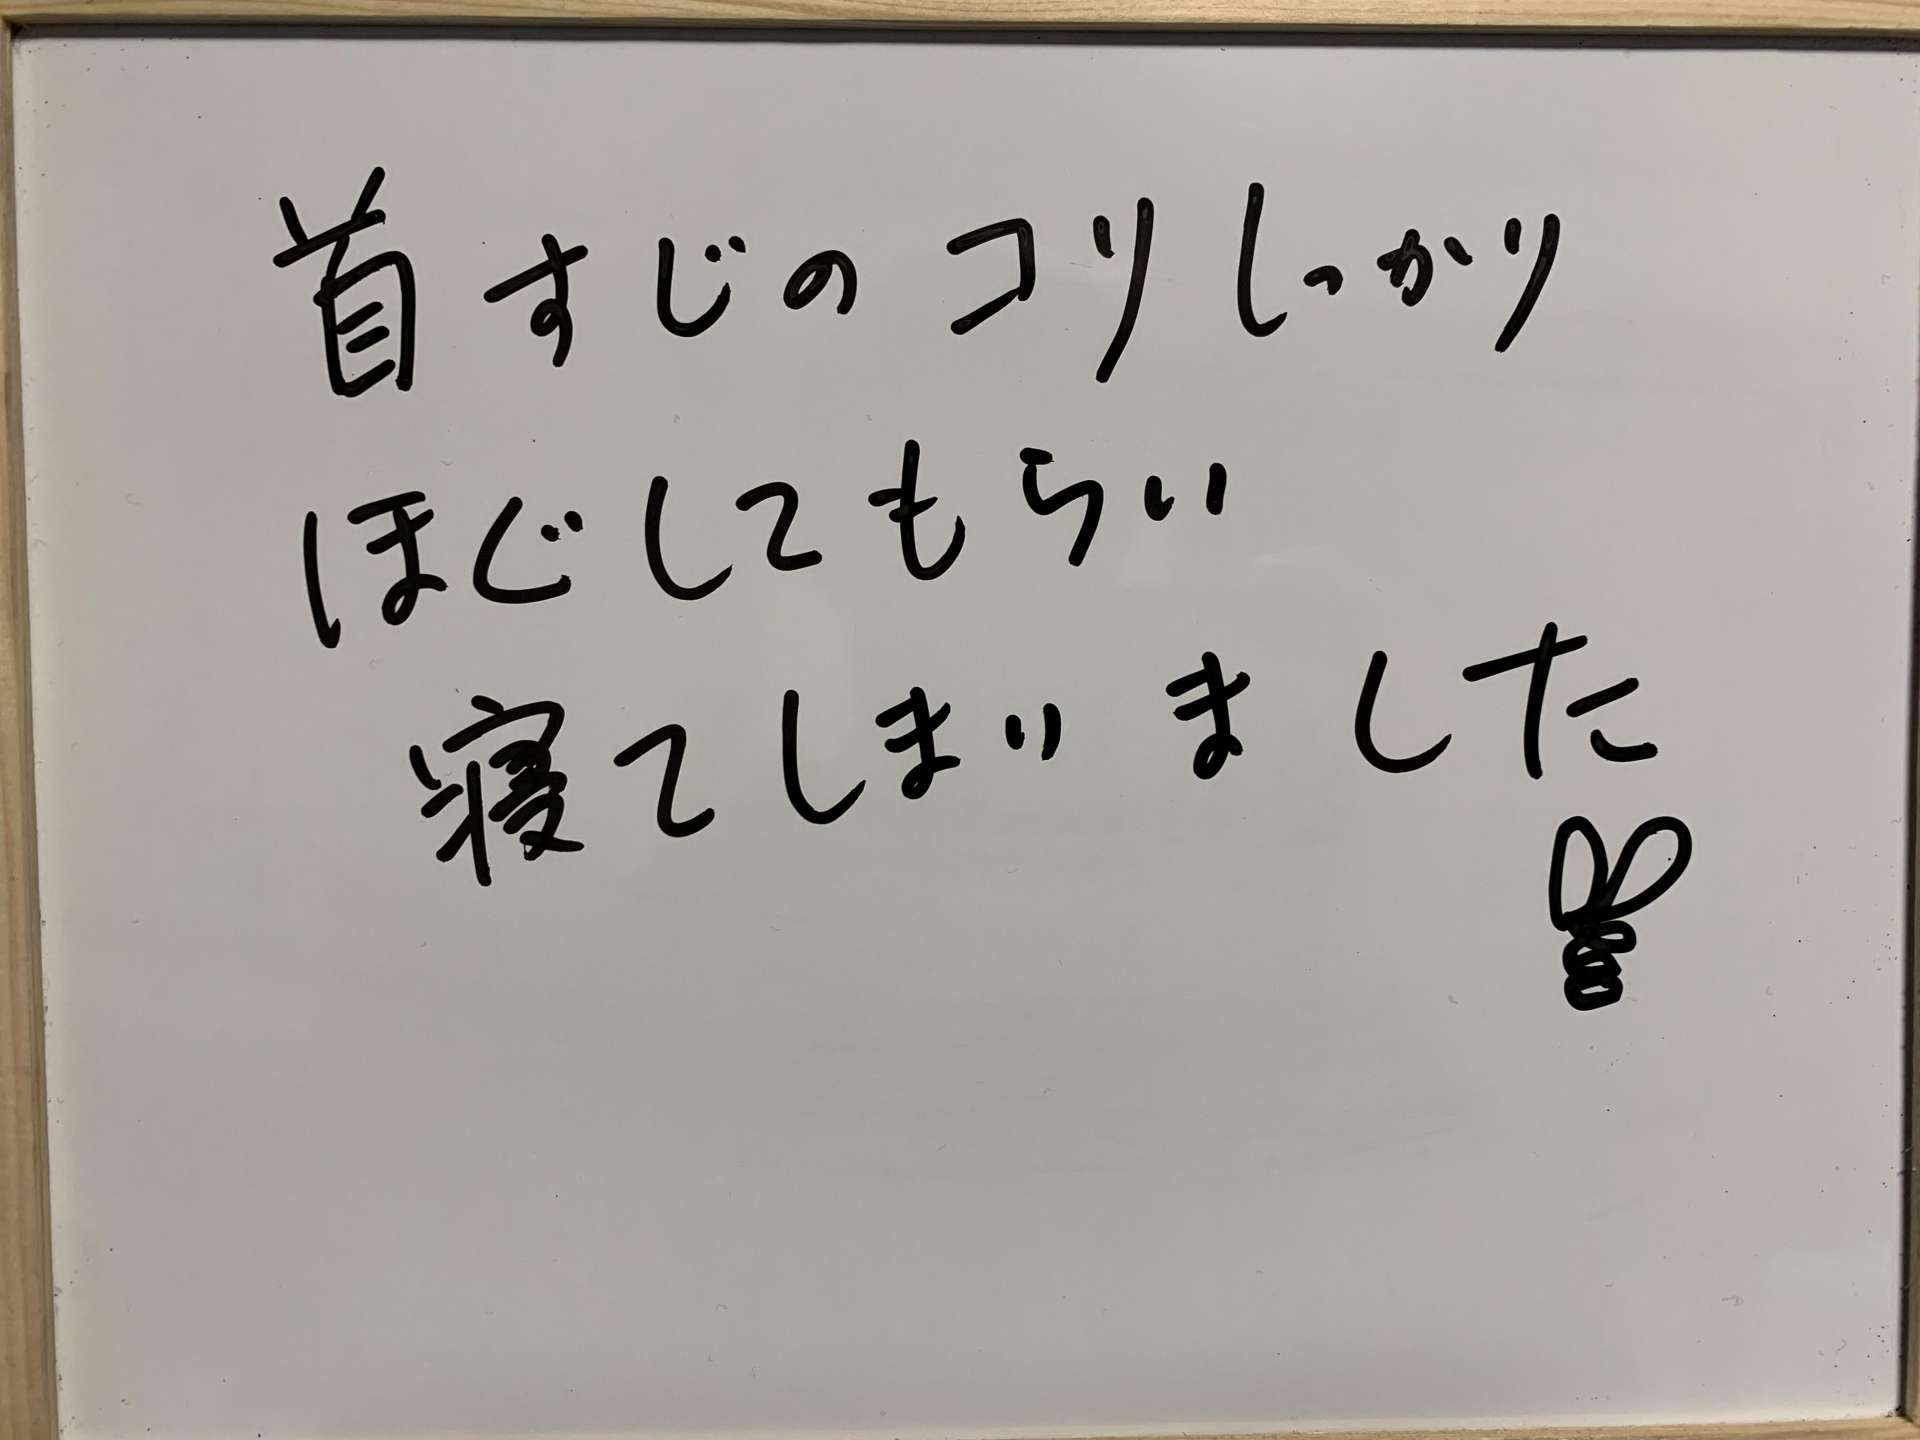 首すじのコリしっかり
ほぐしてもらい
寝てしまいました